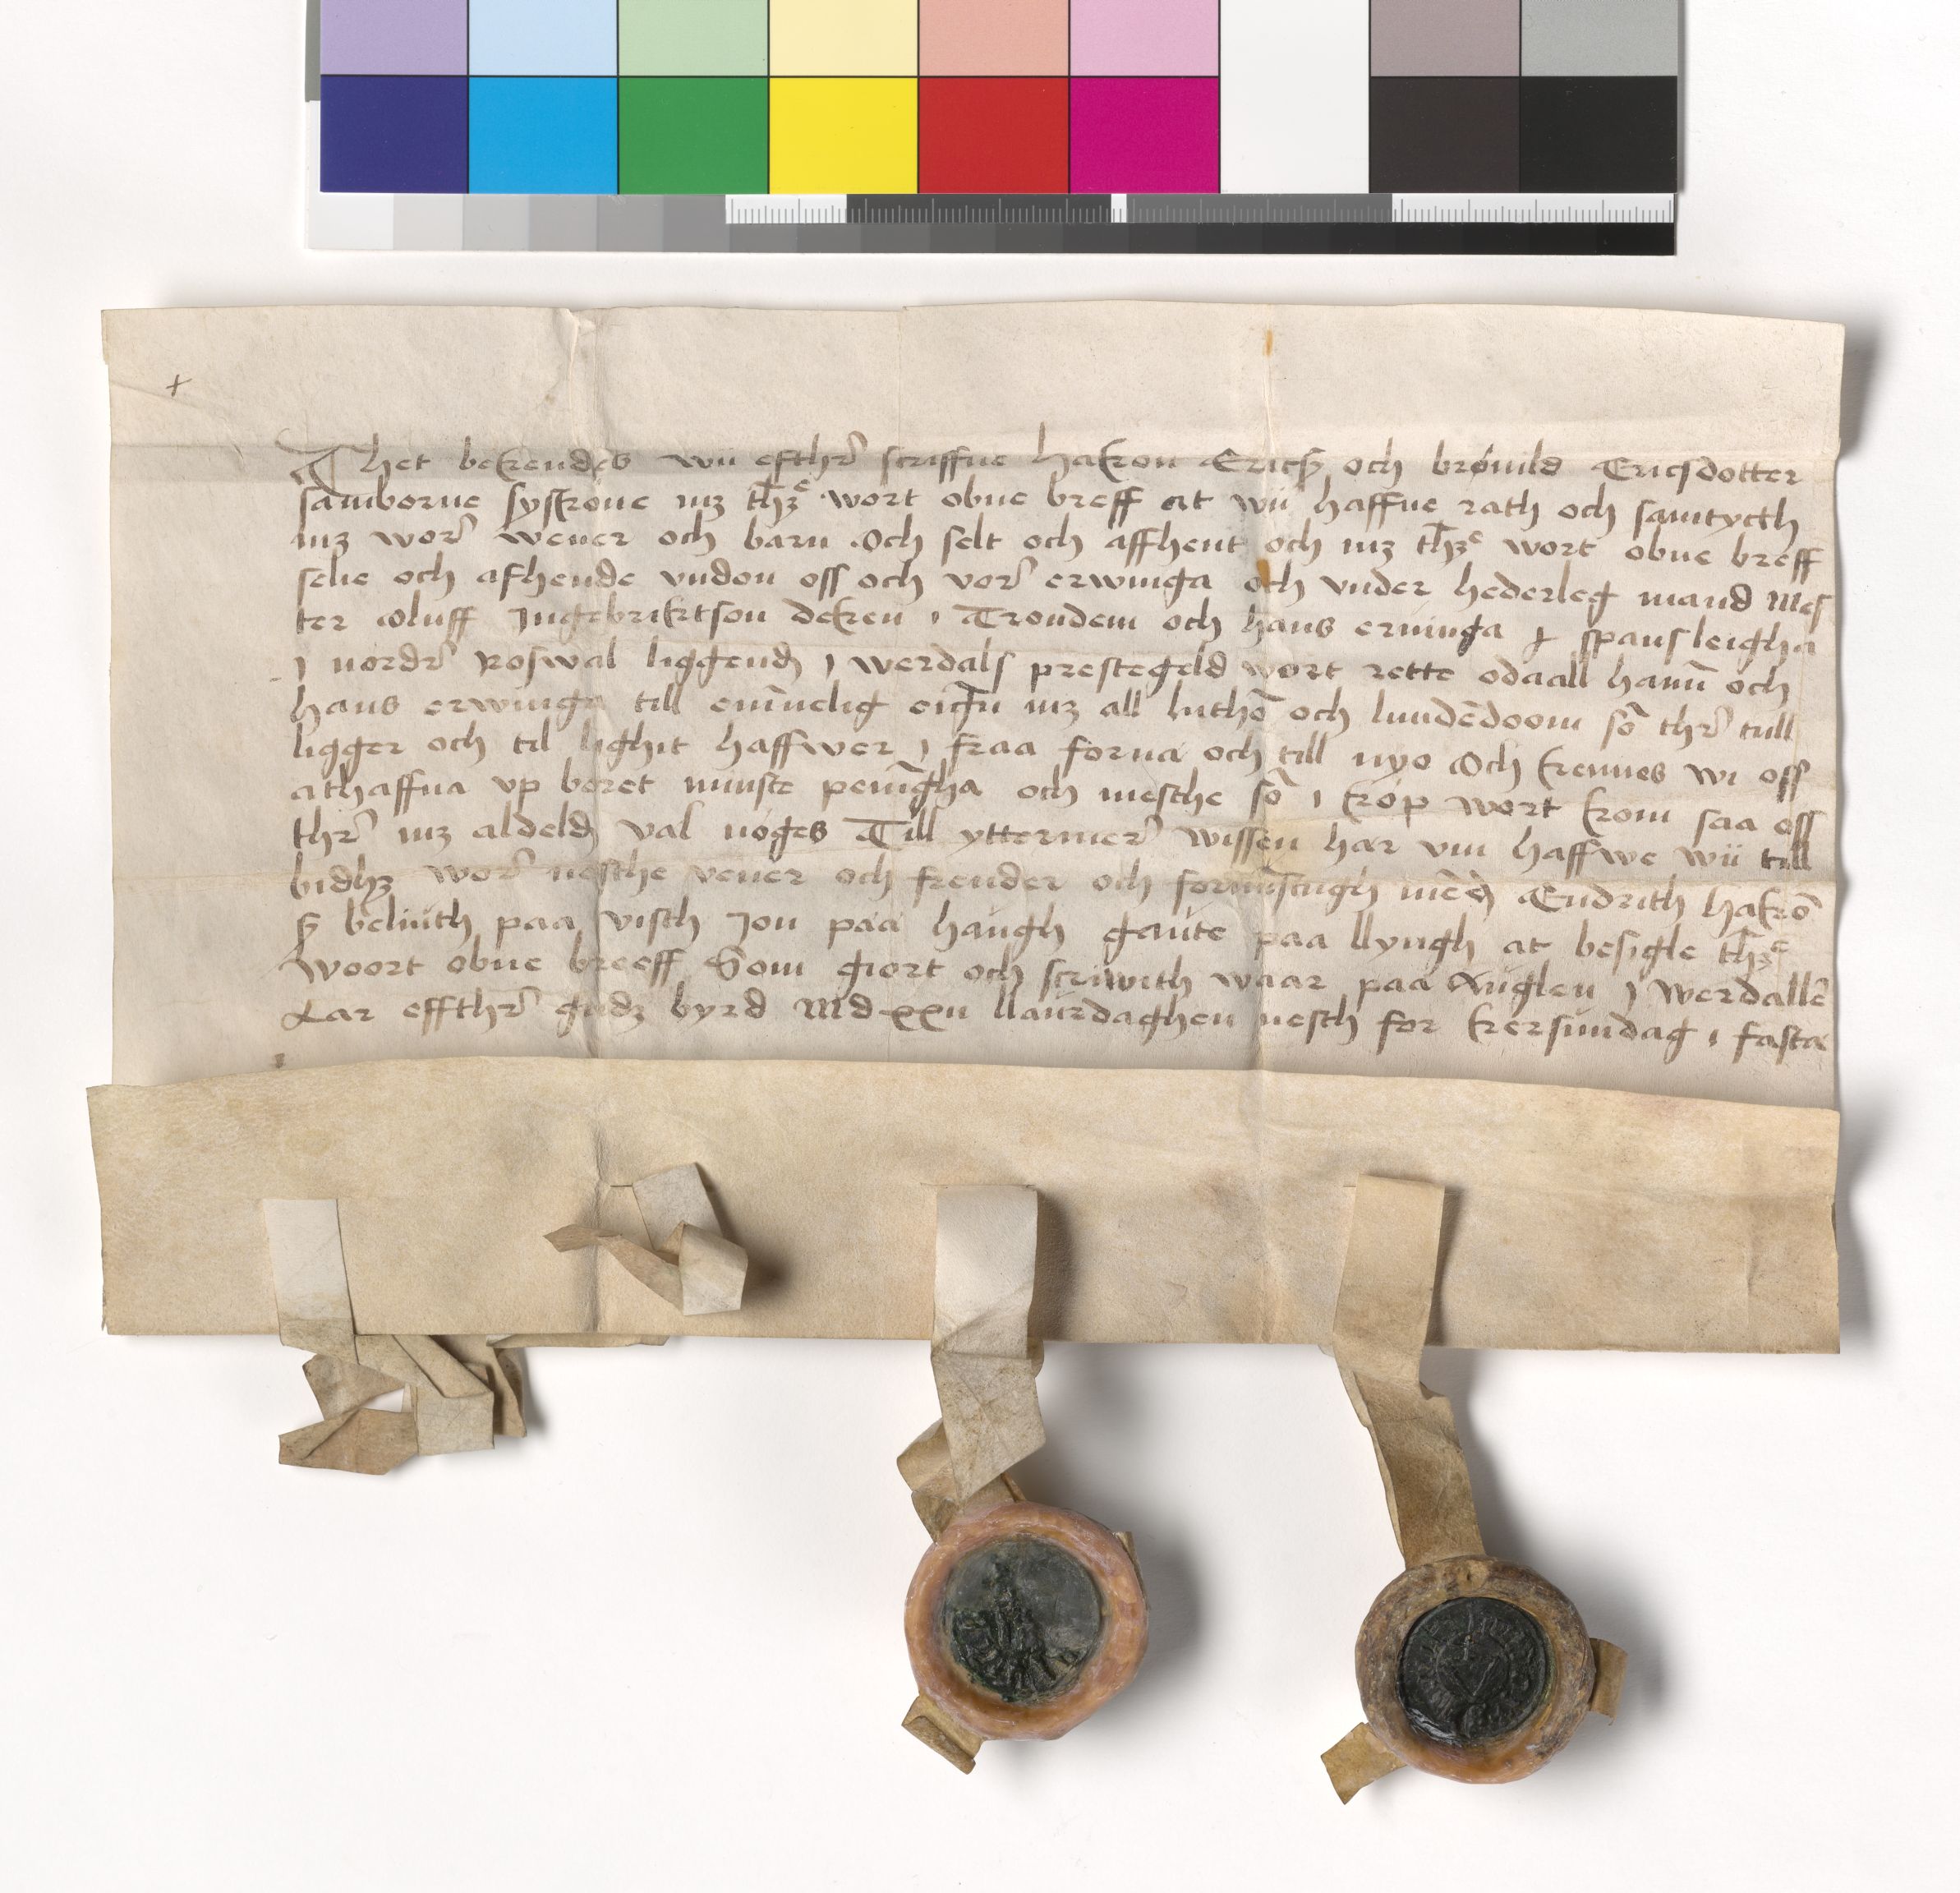 Thet bekendes wii efthr̄ scriffne hakon Ericß och brønild Ericsdotter
samborne syskøne mz thz̄e wort obne breff at wii haffue rath och samtycth
mz wor̄ wener och barn Och selt och affhent och mz thz̄e wort obne breff
selie och afhende vndon oss och vor̄ erwinga och vnder hederleg mand Mes
ter Oluff Jngebriktson deken i Trondem och hans ervinga spansleigha
j nordr̄ Roswal liggend j werdals prestegeld wort rette odaall hanū och
hans erwinga till ewīnelig eigū mz all luthō och lundēdoom sō thr̄ till
ligger och til lighit haffwer j fraa forna och till nyo Och kennes wi oss
athaffua vp boret minste penīgha och mesthe sō i køp wort kom saa oss
thr̄ mz aldeld val nøges Till yttermer̄ wissen har vm haffwe wii till
bidhz wor̄ nesthe vener och frender och fornūstugh mē Endrith hakō
ß belinth paa visth Jon paa haugh gaute paa llyngh at besigle thz̄e
woort obne breeff Som giort och scriwith waar paa Auglen j werdallē
Aar effthr̄ gudz byrd Mdxxii llaurdaghen nesth for kersundag i fasta